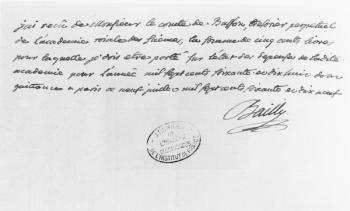 j'ai reçu de Monsieur le comte de Buffon, tresorier perpetuel
de l'academie roiale des sciences, la somme de cinq cents livres
pour laquelle je dois etre porté sur l'etat des depenses de ladite
academie pour l'année mil sept cents soixante et dix huit dont
quittance a paris ce neuf juillet mil sept cents soixante et dix neuf
Bailly
DE L'INSTITUT DE FRANCE